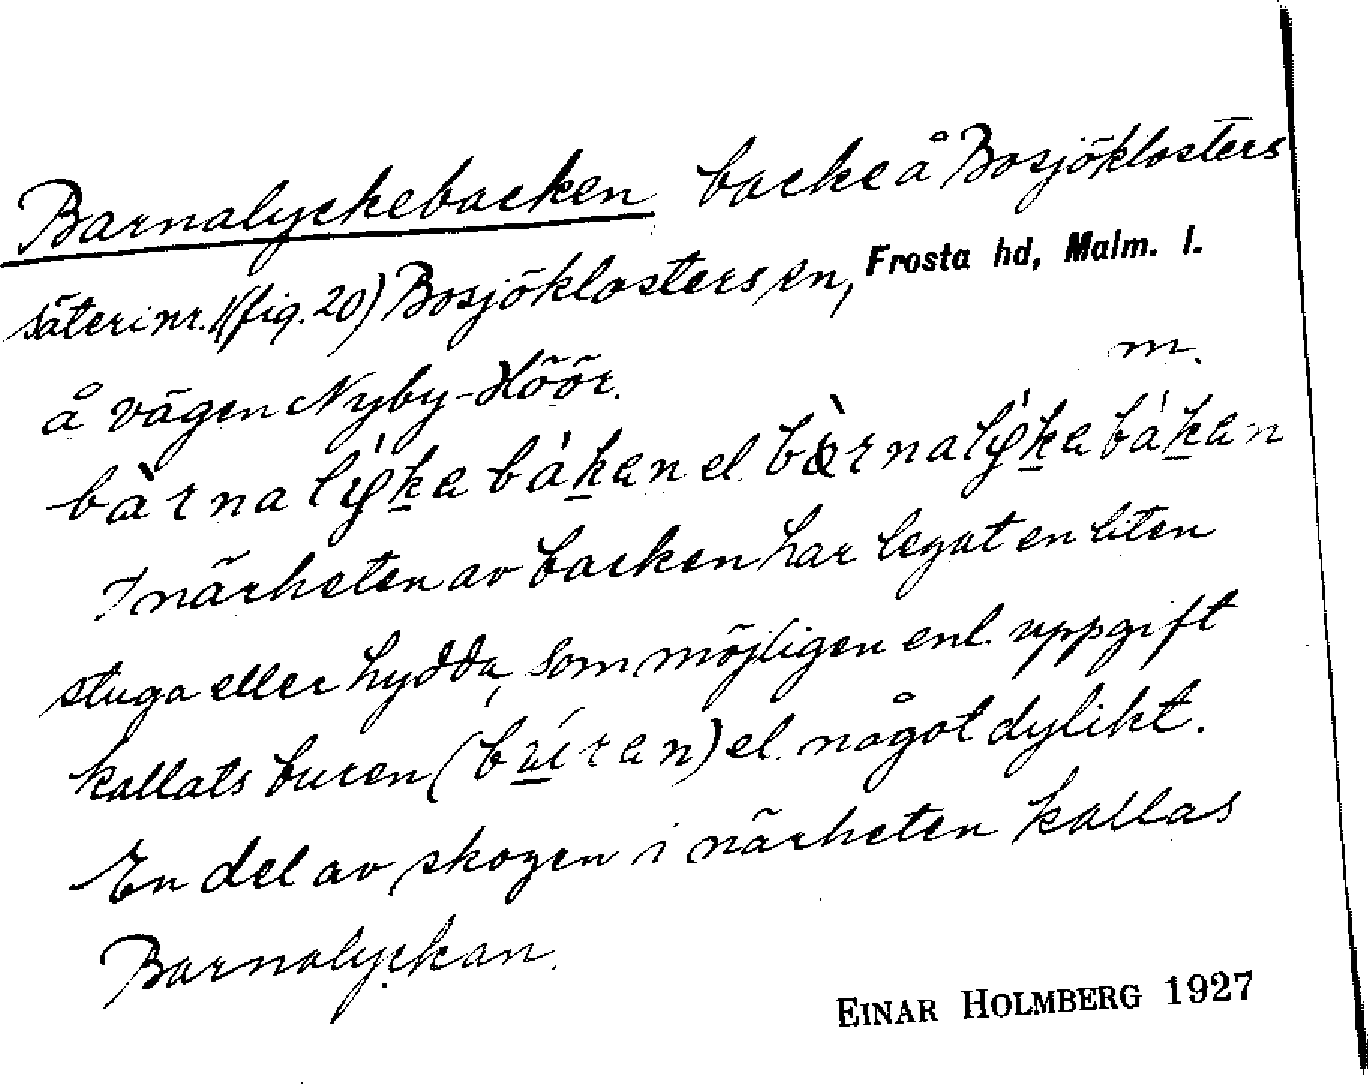 Barnalyckebacken backe å Bosjöklosters
säteri nr. 1 (fig. 20) Bosjöklosters sn, Frosta hd, Malm. l.
å vägen Nyby-Höör. m.
bàrnalýkebákan el bàrnalýkabákan
I närheten av backen har legat en liten
stuga eller hydda, som möjligen enl. uppgift
kallats buren (búran) el. något dylikt.
En del av skogen i närheten kallas
Barnalyckan.
EINAR HOLMBERG 1927